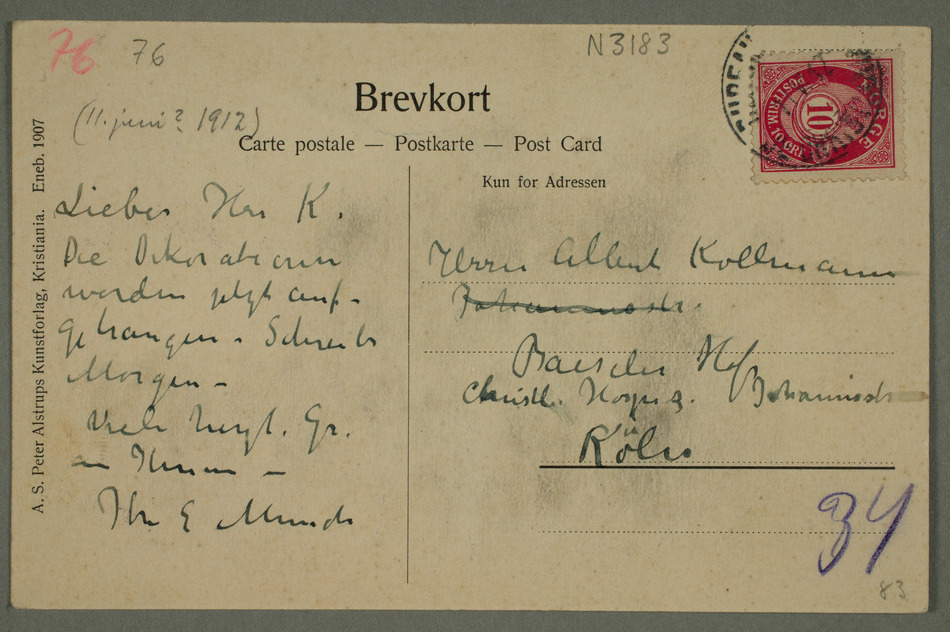 76
76
N3183
(11. juni? 1912)
Brevkort
Carte postale — Postkarte — Post Card
Kun for Adressen
NORGE
POSTFRIM. 10 ØRE
10
A. S. Peter Alstrups Kunstforlag, Kristiania. Eneb. 1907
Lieber Herr K.
Die Dekorationen
werden jetzt auf-
gehangen. Schreibe
Morgen –
Viele herzl. Gr.
Ihnen –
Ihr E Munch
Herrn Albert Kollmann
Johannesstr.
Baseler Hof
Christl. Hospiz. Johannisstr
Köln
34
83